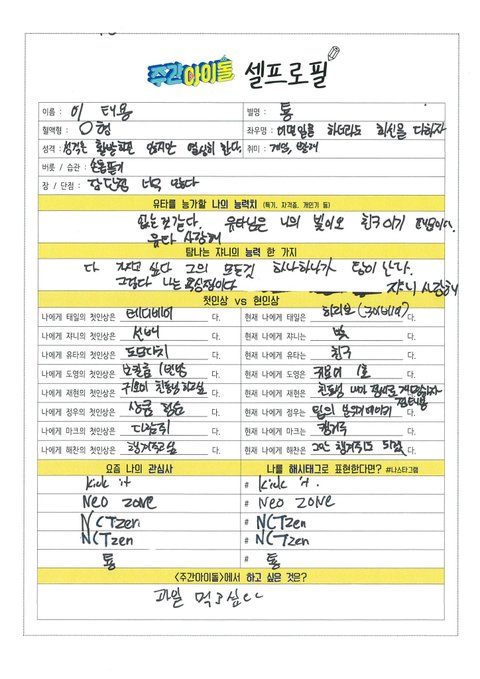 주간아이돌 셀프로필
이름 : 이 태용 별명 : 통
혈액형 : O형 좌우명 : 어떤일을 하더라도 최선을 다하자
성격 : 성격은 활발하진 않지만 열심히 한다. 취미 : 게임,
버릇 / 습관 : 손톱뜯기
장 / 단점 : 장단점 너무 많다
유타를 능가할 나의 능력치 (특기, 자격증, 개인기 등)
없는것같다. 유타님은 나의 빛이요 친구이기 때문이다.
유타 사랑해
탐나는 쟈니의 능력 한 가지
다 가지고 싶다 그의 모든것 하나하나가 탐이 난다.
그렇다 나는 욕심쟁이다 쟈니 사랑해
첫인상 vs 현인상
나에게 태일의 첫인상은 테디베어 다. 현재 나에게 태일은 다.
나에게 쟈니의 첫인상은 선배 다. 현재 나에게 쟈니는 벗 다.
나에게 유타의 첫인상은 다. 현재 나에게 유타는 친구 다.
나에게 도영의 첫인상은 다. 현재 나에게 도영은 귀요미 1호 다.
나에게 재현의 첫인상은 귀요미 친동생 하고싶 다. 현재 나에게 재현은 친동생
나에게 정우의 첫인상은 상큼 다. 현재 나에게 정우는 팀의 분위기메이커 다.
나에게 마크의 첫인상은 다람쥐 다. 현재 나에게 마크는 다.
나에게 해찬의 첫인상은 챙겨주고싶 다. 현재 나에게 해찬은 다.
요즘 나의 관심사 나를 해시태그로 표현한다면? #나스타그램
Kick it # Kick it.
Neo ZONE # Neo ZONE
NCTzen # NCTzen
NCTzen # NCTzen
통 # 통
<주간아이돌>에서 하고 싶은 것은?
과일 먹고싶다